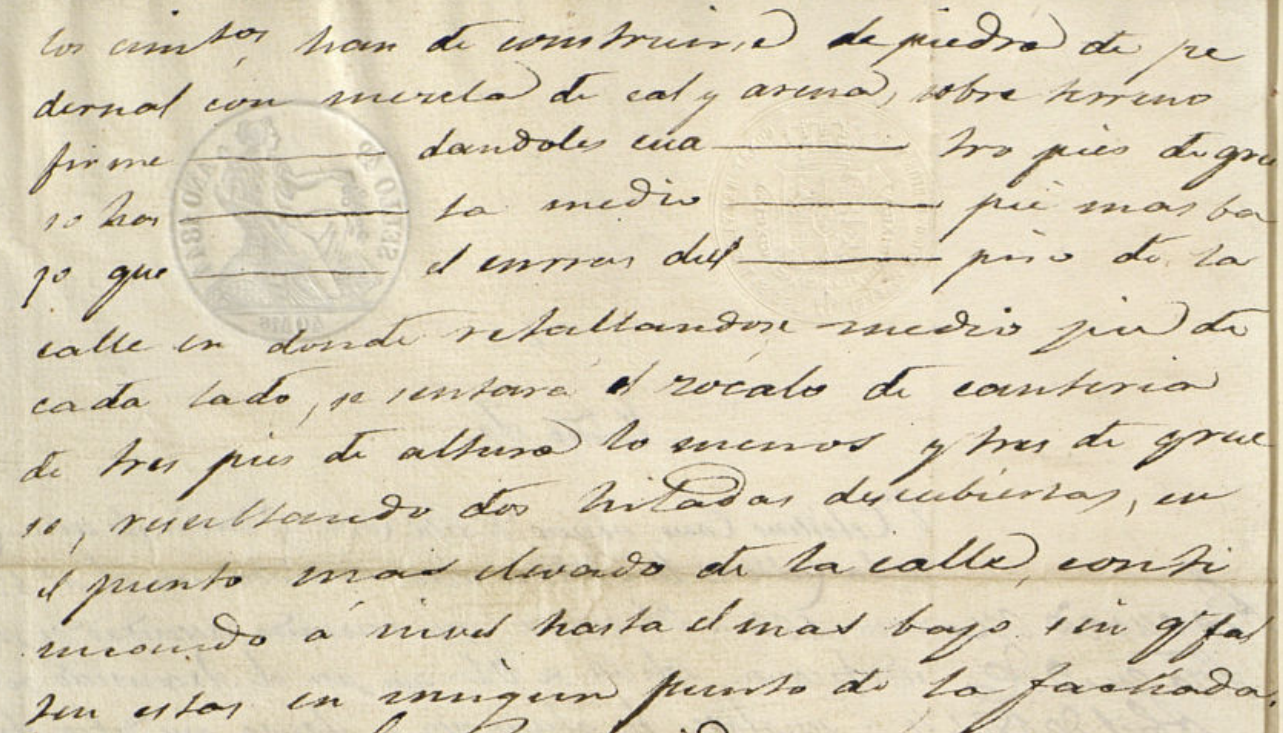 los cimtos han de construirse de piedra de pe
dernal con mezcla de cal y arena, sobre terreno
firme dandoles cua tro pies de grue
so has ta medio pie mas ba
jo que el enrras del piso de la
calle en donde retallandose medio pie de
cada lado, se sentará el zocalo de canteria
de tres pies de altura lo menos y tres de grue
so, resultando dos hiladas descubiertas, en
el punto mas elevado de la calle, conti
nuando á nivel hasta el mas bajo sin qe fal
ten estas en ningun punto de la fachada.